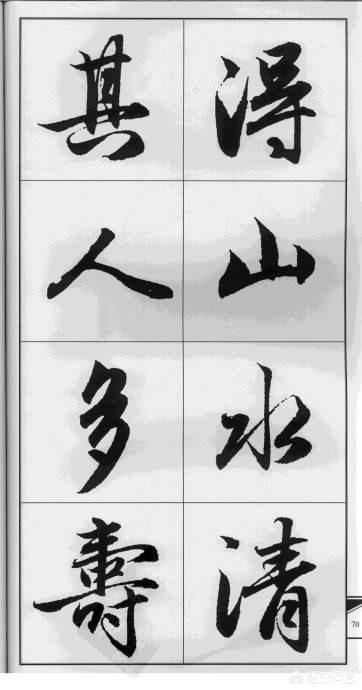 得山水清
其人多壽
70